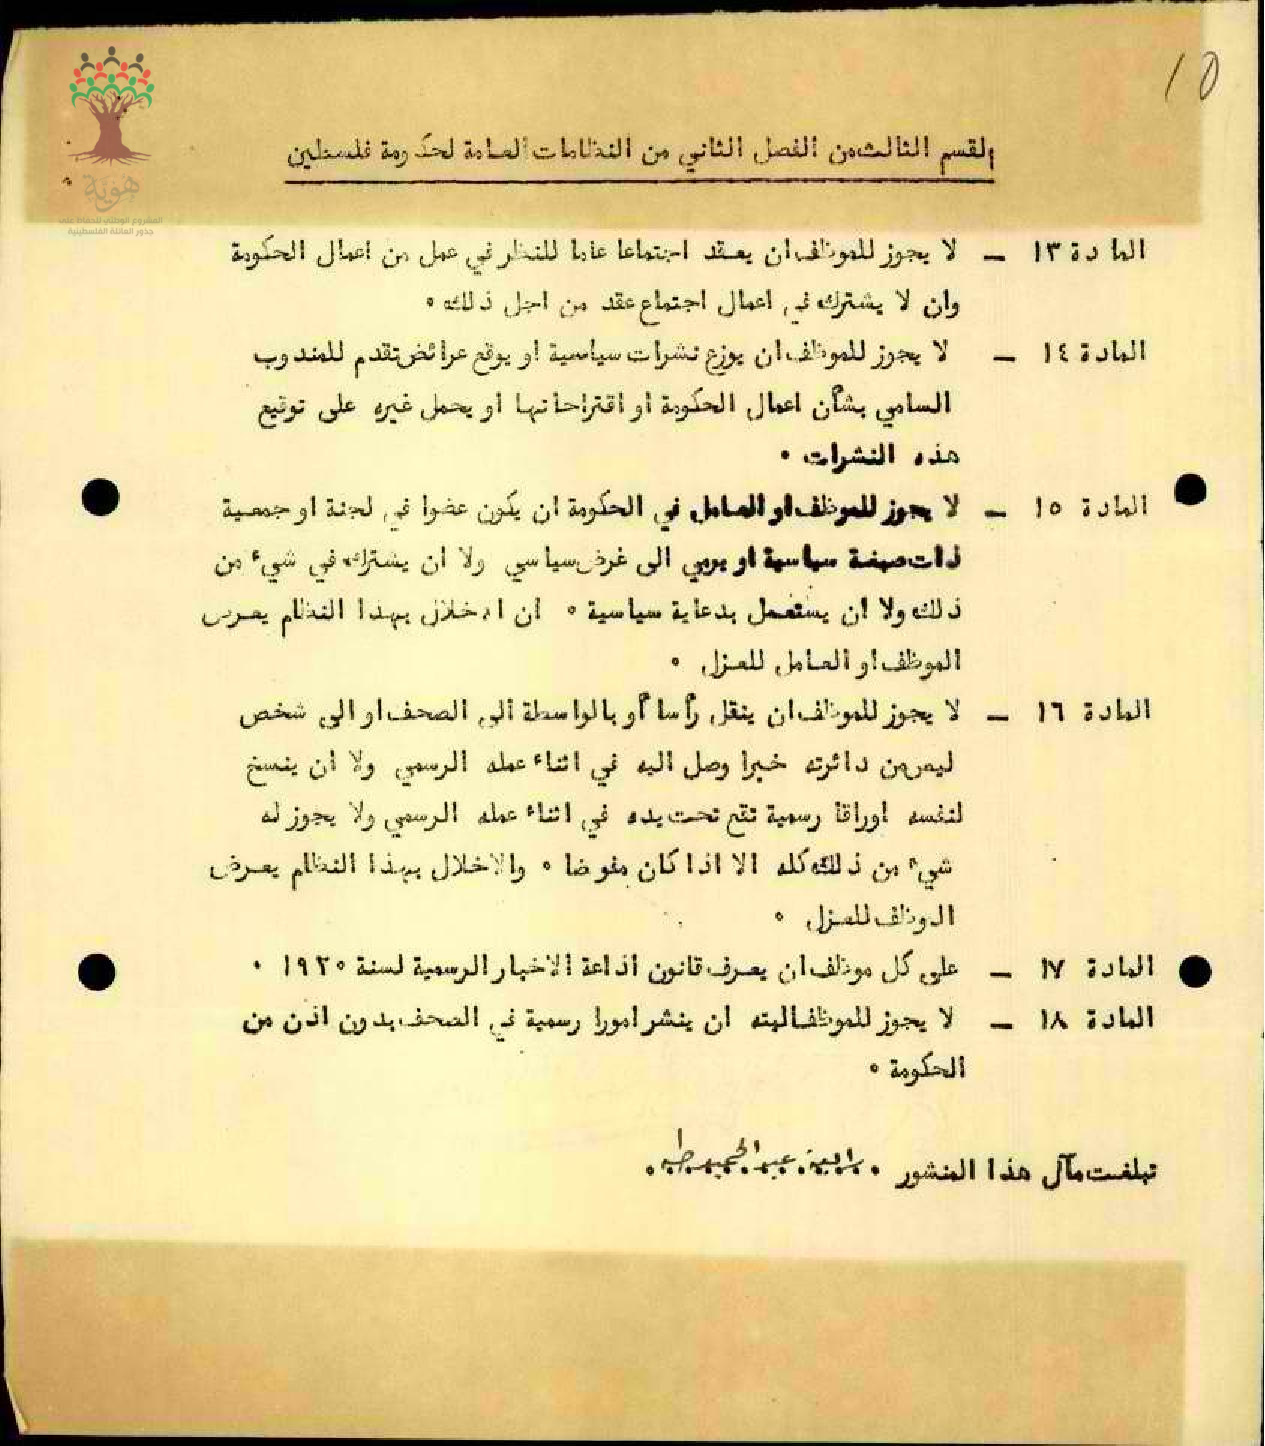 10
هوية
المشروع الوطني للحفاظ على
جذور العائلة الفلسطينية
القسم الثالث من الفصل الثاني من النظامات العامة لحكومة فلسطين
المادة ١٣ – لا يجوز للموظف ان يعقد اجتماعا عاما للنظر في عمل من اعمال الحكومة
وان لا يشترك في اعمال اجتماع عقد من اجل ذلك ٠
المادة ١٤ – لا يجوز للموظف ان يوزع نشرات سياسية او يوقع عرائض تقدم للمندوب
السامي بشأن اعمال الحكومة او اقتراحاتها او يحمل غيره على توقيع
هذه النشرات ٠
المادة ١٥ – لا يجوز للموظف او العامل في الحكومة ان يكون عضوا في لجنة او جمعية
ذات صبغة سياسية او يرمي الى غرض سياسي ولا ان يشترك في شيء من
ذلك ولا ان يشتغل بدعاية سياسية ٠ ان الاخلال بهذا النظام يعرض
الموظف او العامل للعزل ٠
المادة ١٦ – لا يجوز للموظف ان ينقل رأسا أو بالواسطة الى الصحف او الى شخص
ليس من دائرته خبرا وصل اليه في اثناء عمله الرسمي ولا ان ينسخ
لنفسه اوراقا رسمية تقع تحت يده في اثناء عمله الرسمي ولا يجوز له
شيء من ذلك كله الا اذا كان مفوضا ٠ والاخلال بهذا النظام يعرض
الموظف للعزل ٠
المادة ١٧ – على كل موظف ان يعرف قانون اذاعة الاخبار الرسمية لسنة ١٩٢٥ ٠
المادة ١٨ – لا يجوز للموظف البته ان ينشر امورا رسمية في الصحف بدون اذن من
الحكومة ٠
تبلغت مآل هذا المنشور ٠ عبد الحميد طه ٠